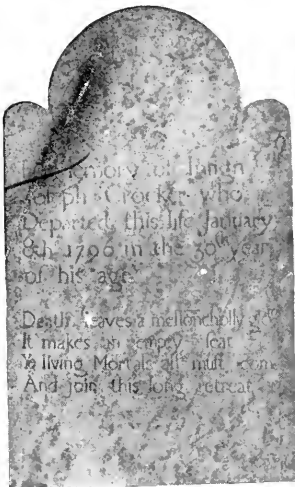 In Memory of
Joseph Crocker who
Departed this life January
8th 1796 in the 30th year
of his age
Death leaves a melloncholly
It makes an empty seat
Ye living Mortals all must come
And join this long retreat